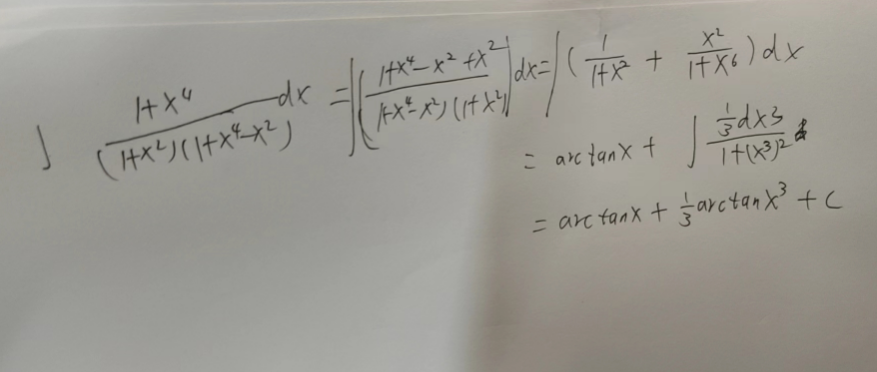 ∫ (1+x⁴)/((1+x²)(1+x⁴-x²)) dx = ∫((1+x⁴-x²+x²)/((1+x⁴-x²)(1+x²)))dx = ∫(1/(1+x²) + x²/(1+x⁶))dx
= arctanx + ∫ (⅓dx³)/(1+(x³)²)
= arctanx + ⅓arctanx³ + C